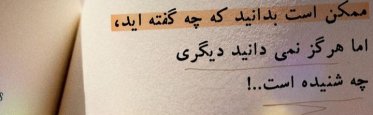 ممکن است بدانید که چه گفته اید،
اما هرگز نمی دانید دیگری
چه شنیده است..!